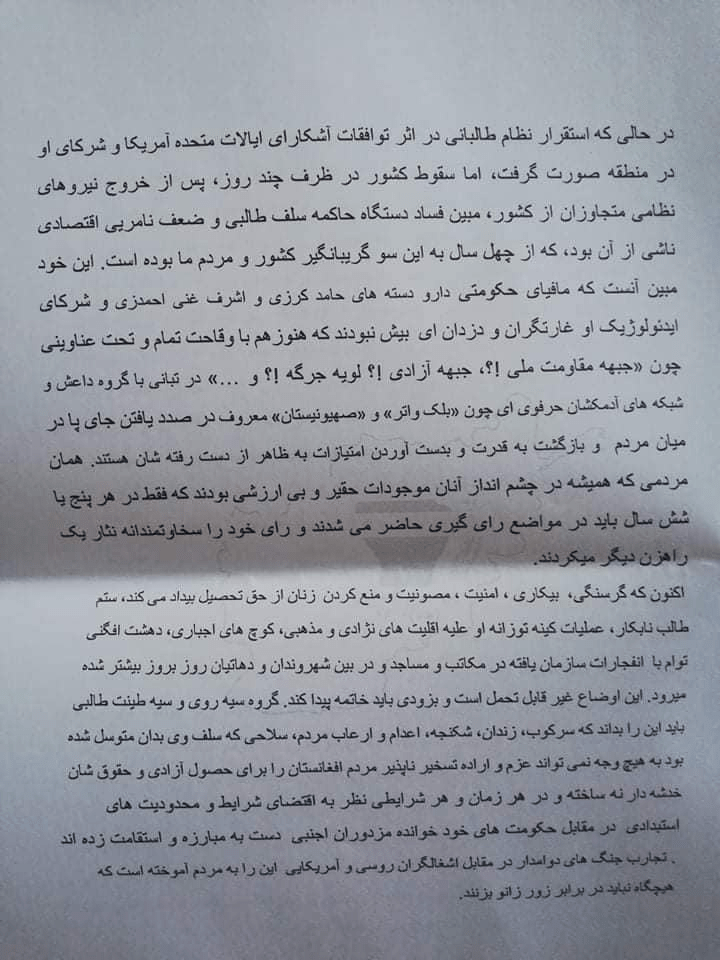 در حالی که استقرار نظام طالبانی در اثر توافقات آشکارای ایالات متحده آمریکا و شرکای او
در منطقه صورت گرفت، اما سقوط کشور در ظرف چند روز، پس از خروج نیروهای
نظامی متجاوزان از کشور، مبین فساد دستگاه حاکمه سلف طالبی و ضعف نامریی اقتصادی
ناشی از آن بود، که از چهل سال به این سو گریبانگیر کشور و مردم ما بوده است. این خود
مبین آنست که مافیای حکومتی دارو دسته های حامد کرزی و اشرف غنی احمدزی و شرکای
ایدئولوژیک او غارتگران و دزدان ای بیش نبودند که هنوزهم با وقاحت تمام و تحت عناوینی
چون «جبهه مقاومت ملی !؟، جبهه آزادی !؟ لویه جرگه !؟ و ...» در تبانی با گروه داعش و
شبکه های آدمکشان حرفوی ای چون «بلک واتر» و «صهیونیستان» معروف در صدد یافتن جای پا در
میان مردم و بازگشت به قدرت و بدست آوردن امتیازات به ظاهر از دست رفته شان هستند. همان
مردمی که همیشه در چشم انداز آنان موجودات حقیر و بی ارزشی بودند که فقط در هر پنج یا
شش سال باید در مواضع رای گیری حاضر می شدند و رای خود را سخاوتمندانه نثار یک
راهزن دیگر میکردند.
اکنون که گرسنگی، بیکاری ، امنیت ، مصونیت و منع کردن زنان از حق تحصیل بیداد می کند، ستم
طالب نابکار، عملیات کینه توزانه او علیه اقلیت های نژادی و مذهبی، کوچ های اجباری، دهشت افگنی
توام با انفجارات سازمان یافته در مکاتب و مساجد و در بین شهروندان و دهاتیان روز بروز بیشتر شده
میرود. این اوضاع غیر قابل تحمل است و بزودی باید خاتمه پیدا کند. گروه سیه روی و سیه طینت طالبی
باید این را بداند که سرکوب، زندان، شکنجه، اعدام و ارعاب مردم، سلاحی که سلف وی بدان متوسل شده
بود به هیچ وجه نمی تواند عزم و اراده تسخیر ناپذیر مردم افغانستان را برای حصول آزادی و حقوق شان
خدشه دار نه ساخته و در هر زمان و هر شرایطی نظر به اقتضای شرایط و محدودیت های
استبدادی در مقابل حکومت های خود خوانده مزدوران اجنبی دست به مبارزه و استقامت زده اند
. تجارب جنگ های دوامدار در مقابل اشغالگران روسی و آمریکایی این را به مردم آموخته است که
هیچگاه نباید در برابر زور زانو بزنند.